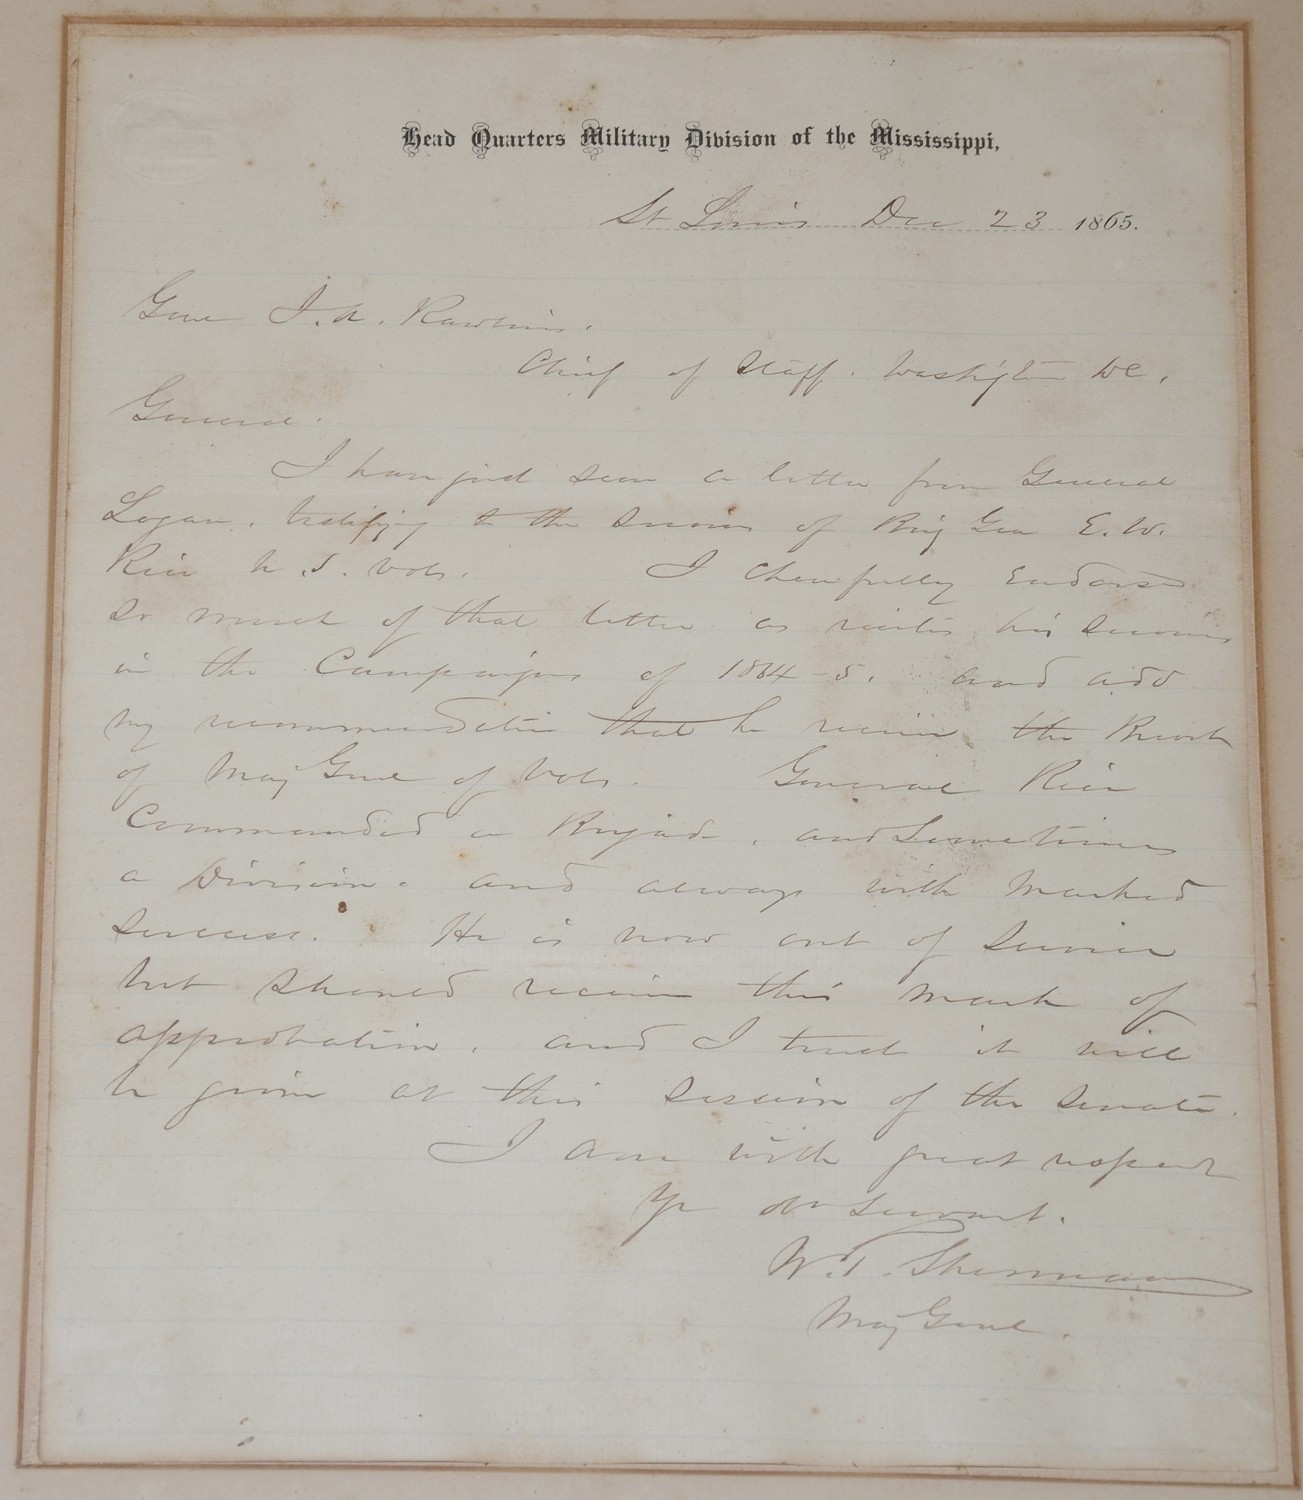 Head Quarters Military Division of the Mississippi,
St Louis Dec 23 1865.
Genl J. A. Rawlins.
Chief of Staff. Washington DC.
General.
I have just seen a letter from General
Logan, testifying to the services of Brig Gen E. W.
Rice U. S. Vols. I cheerfully Endorse
so much of that letter as recites his services
in the Campaigns of 1864-5. and add
my recommendation that he receive the Brevet
of Maj Genl of Vols. General Rice
Commanded a Brigade, and sometimes
a Division. and always with marked
success. He is now out of service
but should receive this mark of
approbation, and I trust it will
be given at this session of the Senate.
I am with great respect
Yr obt servant.
W. T. Sherman
Maj Genl.